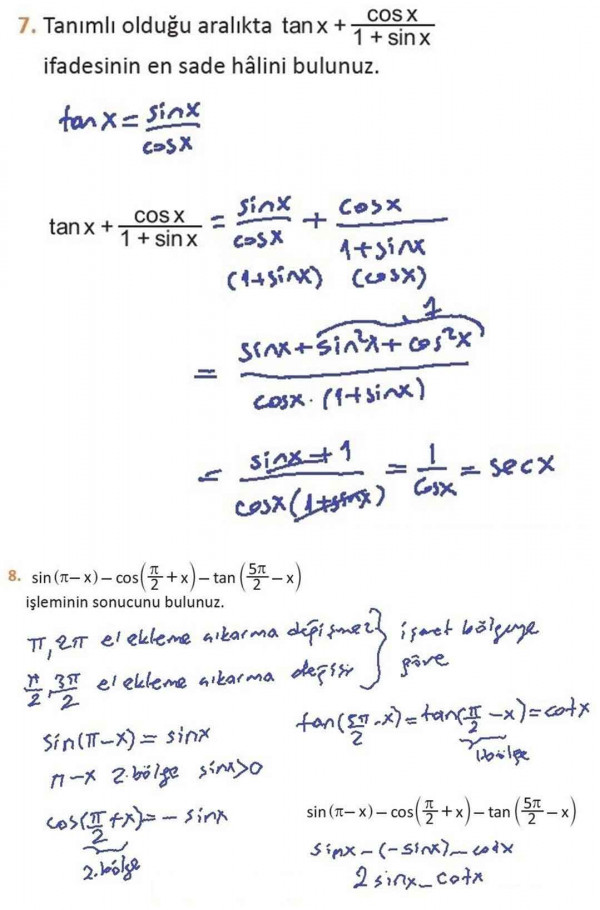 7. Tanımlı olduğu aralıkta tan x + cos x / (1 + sin x)
ifadesinin en sade hâlini bulunuz.
tan x = sinx / cosx
tan x + cos x / (1 + sin x) = sinx / cosx + cosx / (1+sinx)
(1+sinx) (cosx)
1
= (sinx + sin²x + cos²x) / (cosx · (1+sinx))
= (sinx + 1) / (cosx (1+sinx)) = 1 / cosx = secx
8. sin (π – x) – cos(π/2 + x) – tan (5π/2 – x)
işleminin sonucunu bulunuz.
π, 2π el ekleme çıkarma değişmez } işaret bölgeye
π/2, 3π/2 el ekleme çıkarma değişir } göre
sin(π–x) = sinx
tan(5π/2 – x) = tan(π/2 – x) = cotx
1.bölge
π–x 2.bölge sinx>0
cos(π/2 + x) = – sinx
2.bölge
sin (π – x) – cos(π/2 + x) – tan (5π/2 – x)
sinx – (–sinx) – cotx
2 sinx – cotx